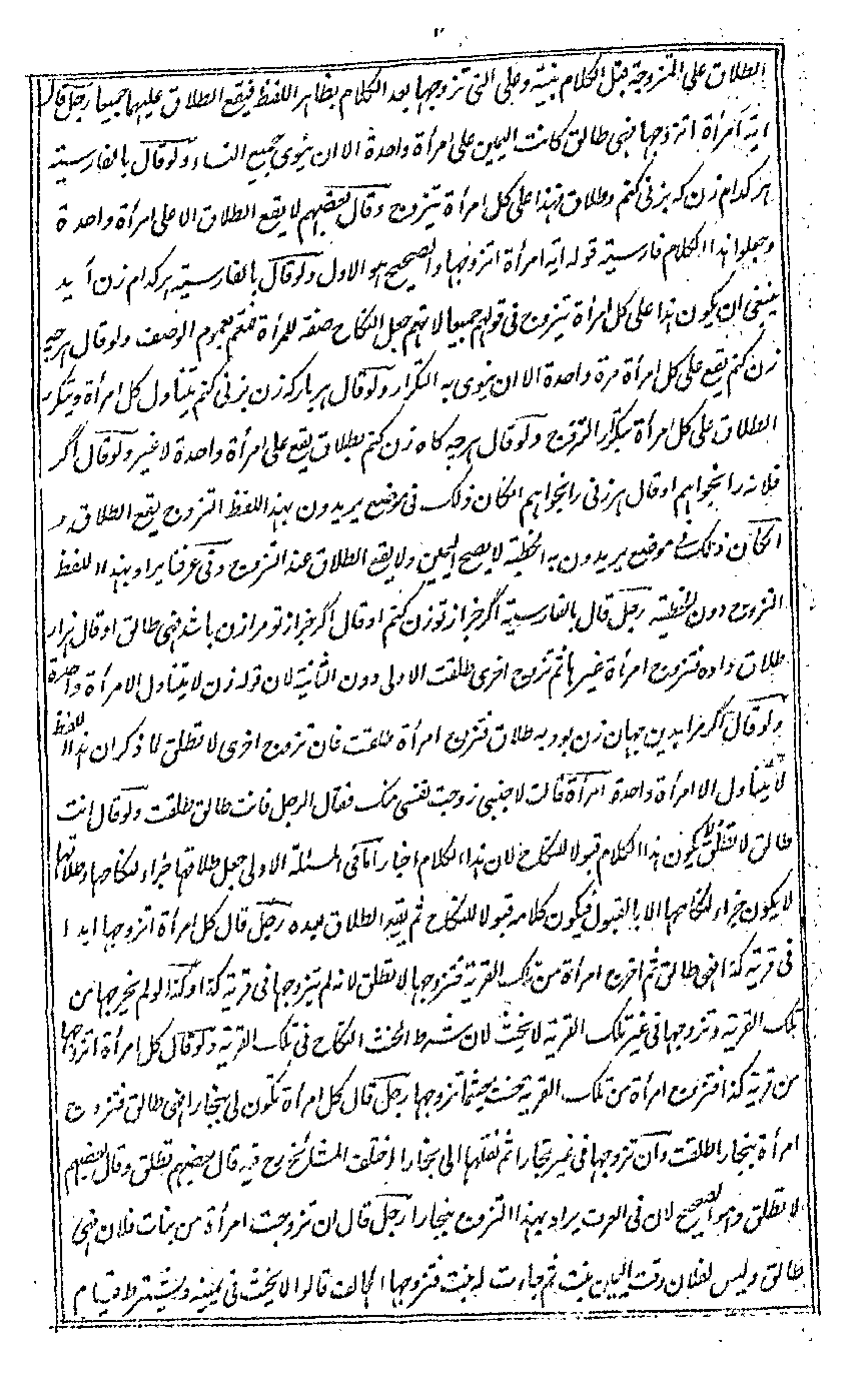 ٣
الطلاق على المتزوجة قبل الكلام بنيته وعلى التى تزوجها بعد الكلام بظاهر اللفظ فيقع الطلاق عليهما جميعا رجل قال
اية امرأة اتزوجها فهى طالق كانت اليمين على امرأة واحدة الا ان ينوى جميع النساء ولو قال بالفارسية
هر كدام زن كه بزنى كنم وطلاق فهذا على كل امرأة يتزوج وقال بعضهم لا يقع الطلاق الا على امرأة واحدة
وجعلوا هذا الكلام فارسية قوله اية امرأة اتزوجها والصحيح هو الاول ولو قال بالفارسية هر كدام زن آيد
ينبغى ان يكون هذا على كل امرأة يتزوج فى قولهم جميعا لانهم جعل النكاح صفة للمرأة فتعم بعموم الوصف ولو قال هرچه
زن كنم يقع على كل امرأة مرة واحدة الا ان ينوى به التكرار ولو قال هر بار كه زن بزنى كنم يتناول كل امرأة ويتكرر
الطلاق على كل امرأة بتكرار التزوج ولو قال هرچه كاه زن كنم بطلاق يقع على امرأة واحدة لا غير ولو قال اگر
فلانه را بخواهم او قال هر زنى را بخواهم انكان ذلك فى موضع يريدون بهذا اللفظ التزوج يقع الطلاق و
انكان ذلك فى موضع يريدون به الخطبة لا يصح اليمين ولا يقع الطلاق عند التزوج وفى عرفنا يراد بهذا اللفظ
التزوج دون الخطبة رجل قال بالفارسية اگر جز از تو زن كنم او قال اگر جز از تو مرا زن باشد فهى طالق او قال هزار
طلاق داده فتزوج امرأة غيرها ثم تزوج اخرى طلقت الاولى دون الثانية لان قوله زن لا يتناول الا امرأة واحدة
ولو قال اگر مرا بدين جهان زن بود به طلاق فتزوج امرأة طلقت فان تزوج اخرى لا تطلق لما ذكر ان هذا اللفظ
لا يتناول الا امرأة واحدة امرأة قالت لاجنبى زوجت نفسى منك فقال الرجل فانت طالق طلقت ولو قال انت
طالق لا تطلق ولا يكون هذا الكلام قبولا للنكاح لان هذا الكلام اخبار اما فى المسئلة الاولى جعل طلاقها جزاء لنكاحها وطلاقها
لا يكون جزاء لنكاحها الا بالقبول فيكون كلامه قبولا للنكاح ثم يقع الطلاق بعده رجل قال كل امرأة اتزوجها ابدا
فى قرية كذا فهى طالق ثم اخرج امرأة من تلك القرية فتزوجها لا تطلق لانه لم يتزوجها فى قرية كذا وكذا لو لم يخرجها من
تلك القرية وتزوجها فى غير تلك القرية لا يحنث لان شرط الحنث النكاح فى تلك القرية ولو قال كل امرأة اتزوجها
من قرية كذا فتزوج امرأة من تلك القرية حنث حيثما تزوجها رجل قال كل امرأة تكون لى ببخارا فهى طالق فتزوج
امرأة ببخارا طلقت وان تزوجها فى غير بخارا ثم نقلها الى بخارا اختلف المشائخ رح فيه قال بعضهم تطلق وقال بعضهم
لا تطلق وهو الصحيح لان فى العرف يراد بهذا التزوج ببخارا رجل قال ان تزوجت امرأة من بنات فلان فهى
طالق وليس لفلان وقت اليمين بنت ثم جاءت له بنت فتزوجها الحالف قالوا لا يحنث فى يمينه ويشترط قيام